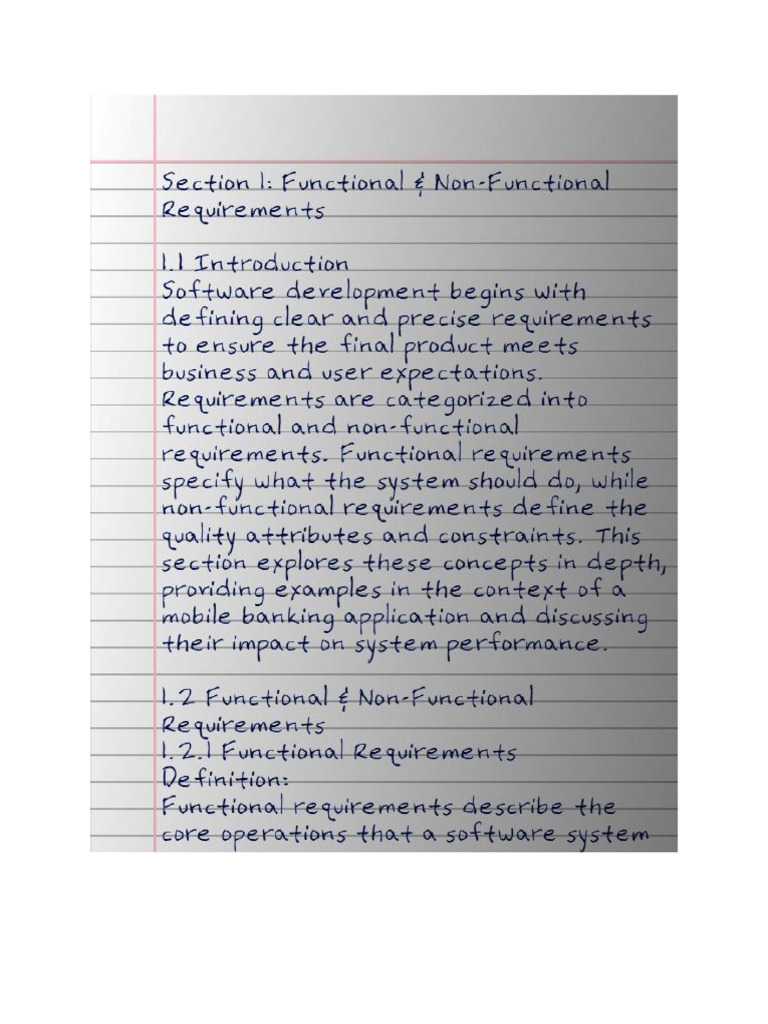 Section 1: Functional & Non-Functional
Requirements
1.1 Introduction
Software development begins with
defining clear and precise requirements
to ensure the final product meets
business and user expectations.
Requirements are categorized into
functional and non-functional
requirements. Functional requirements
specify what the system should do, while
non-functional requirements define the
quality attributes and constraints. This
section explores these concepts in depth,
providing examples in the context of a
mobile banking application and discussing
their impact on system performance.
1.2 Functional & Non-Functional
Requirements
1.2.1 Functional Requirements
Definition:
Functional requirements describe the
core operations that a software system